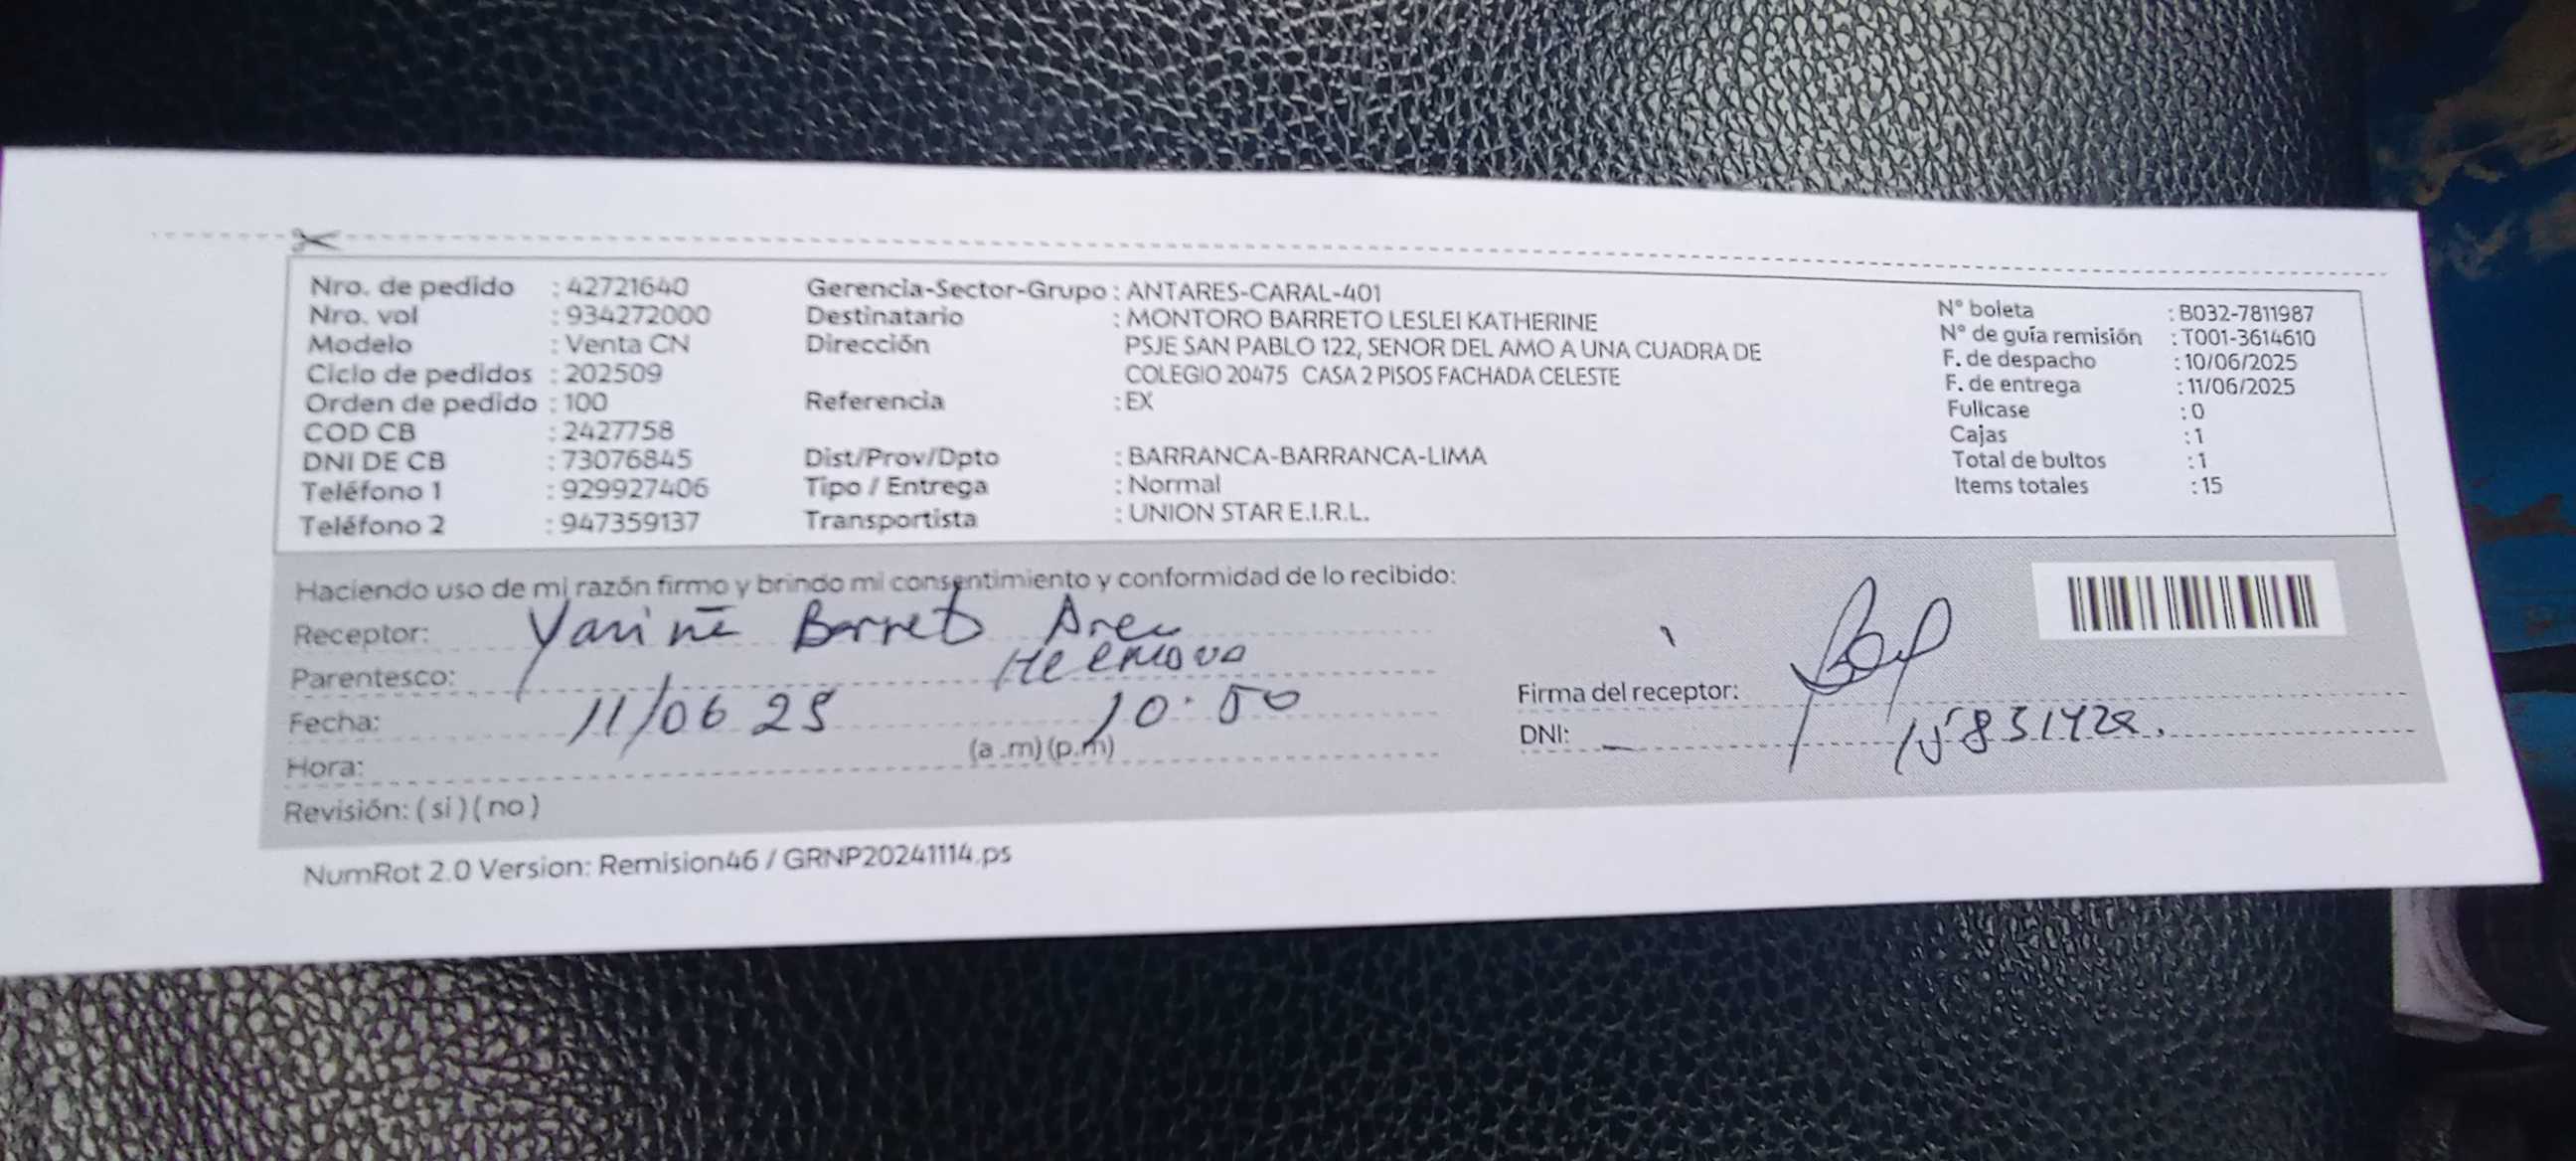 Nro. de pedido : 42721640
Nro. vol : 934272000
Modelo : Venta CN
Ciclo de pedidos : 202509
Orden de pedido : 100
COD CB : 2427758
DNI DE CB : 73076845
Teléfono 1 : 929927406
Teléfono 2 : 947359137
Gerencia-Sector-Grupo : ANTARES-CARAL-401
Destinatario : MONTORO BARRETO LESLEI KATHERINE
Dirección PSJE SAN PABLO 122, SENOR DEL AMO A UNA CUADRA DE
COLEGIO 20475 CASA 2 PISOS FACHADA CELESTE
Referencia : EX
Dist/Prov/Dpto : BARRANCA-BARRANCA-LIMA
Tipo / Entrega : Normal
Transportista : UNION STAR E.I.R.L.
N° boleta : B032-7811987
N° de guía remisión : T001-3614610
F. de despacho : 10/06/2025
F. de entrega : 11/06/2025
Fullcase : 0
Cajas : 1
Total de bultos : 1
Items totales : 15
Haciendo uso de mi razón firmo y brindo mi consentimiento y conformidad de lo recibido:
Receptor:
Parentesco:
Fecha: 11/06 25 10:50
Hora: (a .m) (p.m)
Revisión: ( si ) ( no )
Firma del receptor:
DNI:
NumRot 2.0 Version: Remision46 / GRNP20241114.ps